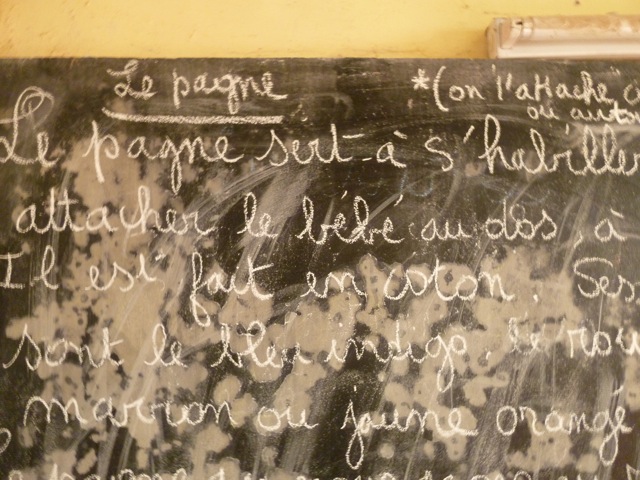 Le pagne
*(on l'attache
ou
Le pagne sert à s'habiller
attacher le bébé au dos, à
Il est fait en coton. Ses
sont le bleu indigo, le
marron ou jaune orangé